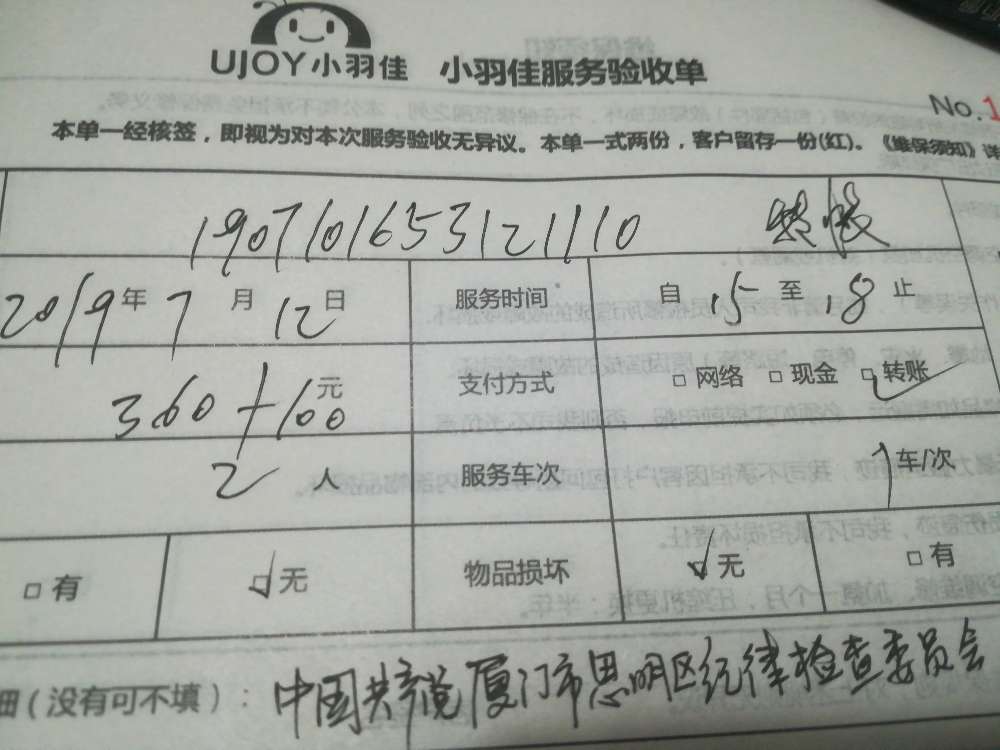 UJOY小羽佳 小羽佳服务验收单
No.1
本单一经核签，即视为对本次服务验收无异议。本单一式两份，客户留存一份(红)。《维保须知》详
1907101653121110 转账
2019年7月12日 服务时间 自15至18止
360+100元 支付方式 □网络 □现金 ☑转账
2人 服务车次 1车/次
□有 ☑无 物品损坏 ☑无 □有
细（没有可不填）：中国共产党厦门市思明区纪律检查委员会